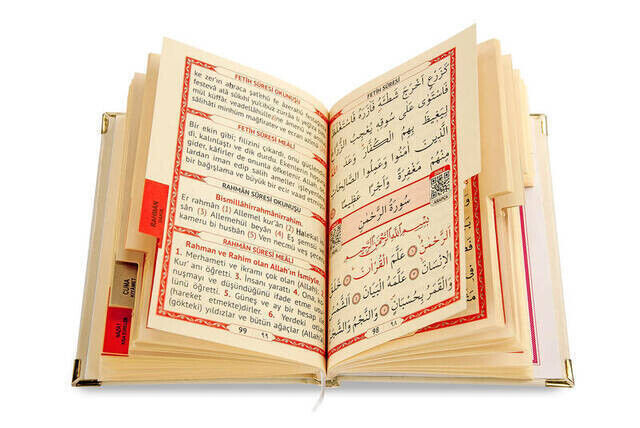 FETİH SÛRESİ OKUNUŞU
ke zer'ın ahrace şat'ehû fe âzerahû
festevâ alâ sûkıhî yu'cibüz zürrâa li yeğîza bihi
mül küffâr, veadellâhüllezîne âmenû ve
sâlihâti minhüm mağfiratev ve ecran azîmâ
FETİH SÛRESİ MEÂLİ
Bir ekin gibi; filizini çıkardı, onu güçlen
di, kalınlaştı ve dik durdu. Esenlerin hoşuna
gider, kâfirler de onunla öfkelenir. Allah,
lardan iman edip salih ameller işleyenlere
bir bağışlama ve büyük bir ecir vaad
RAHMÂN SÛRESİ OKUNUŞU
Bismillâhirrahmânirrahîm.
Er rahmân (1) Allemel kur'ân (2) Halekal
sân (3) Allemehül beyân (4) Eş şemsü
kameru bi husbân (5) Ven necmü veş
RAHMÂN SÛRESİ MEÂLİ
Rahman ve Rahîm olan Allah'ın İsmiyle.
1. Merhameti ve ikramı çok olan (Allah),
Kur'anı öğretti. 3. İnsanı yarattı 4. Ona,
nuşmayı ve düşündüğünü ifade etme
lünü öğretti. 5. Güneş ve ay bir hesap
(hareket etmektedirler. 6. Yerdeki otlar
(gökteki) yıldızlar ve bütün ağaçlar (Allah
99 ٩٩
RAHMÂN
CUMA
FETİH SÛRESİ
كَزَرْعٍ اَخْرَجَ شَطْـَٔهُ فَاٰزَرَهُ فَاسْتَغْلَظَ
فَاسْتَوٰى عَلٰى سُوقِهٖ يُعْجِبُ الزُّرَّاعَ
لِيَغٖيظَ بِهِمُ الْكُفَّارَ وَعَدَ اللّٰهُ
الَّذٖينَ اٰمَنُوا وَعَمِلُوا الصَّالِحَاتِ
مِنْهُمْ مَغْفِرَةً وَاَجْرًا عَظٖيمًا
سُورَةُ الرَّحْمٰنِ
بِسْمِ اللّٰهِ الرَّحْمٰنِ الرَّحٖيمِ
اَلرَّحْمٰنُ عَلَّمَ الْقُرْاٰنَ خَلَقَ
الْاِنْسَانَ عَلَّمَهُ الْبَيَانَ اَلشَّمْسُ
وَالْقَمَرُ بِحُسْبَانٍ وَالنَّجْمُ وَالشَّجَرُ
98 ٩٨